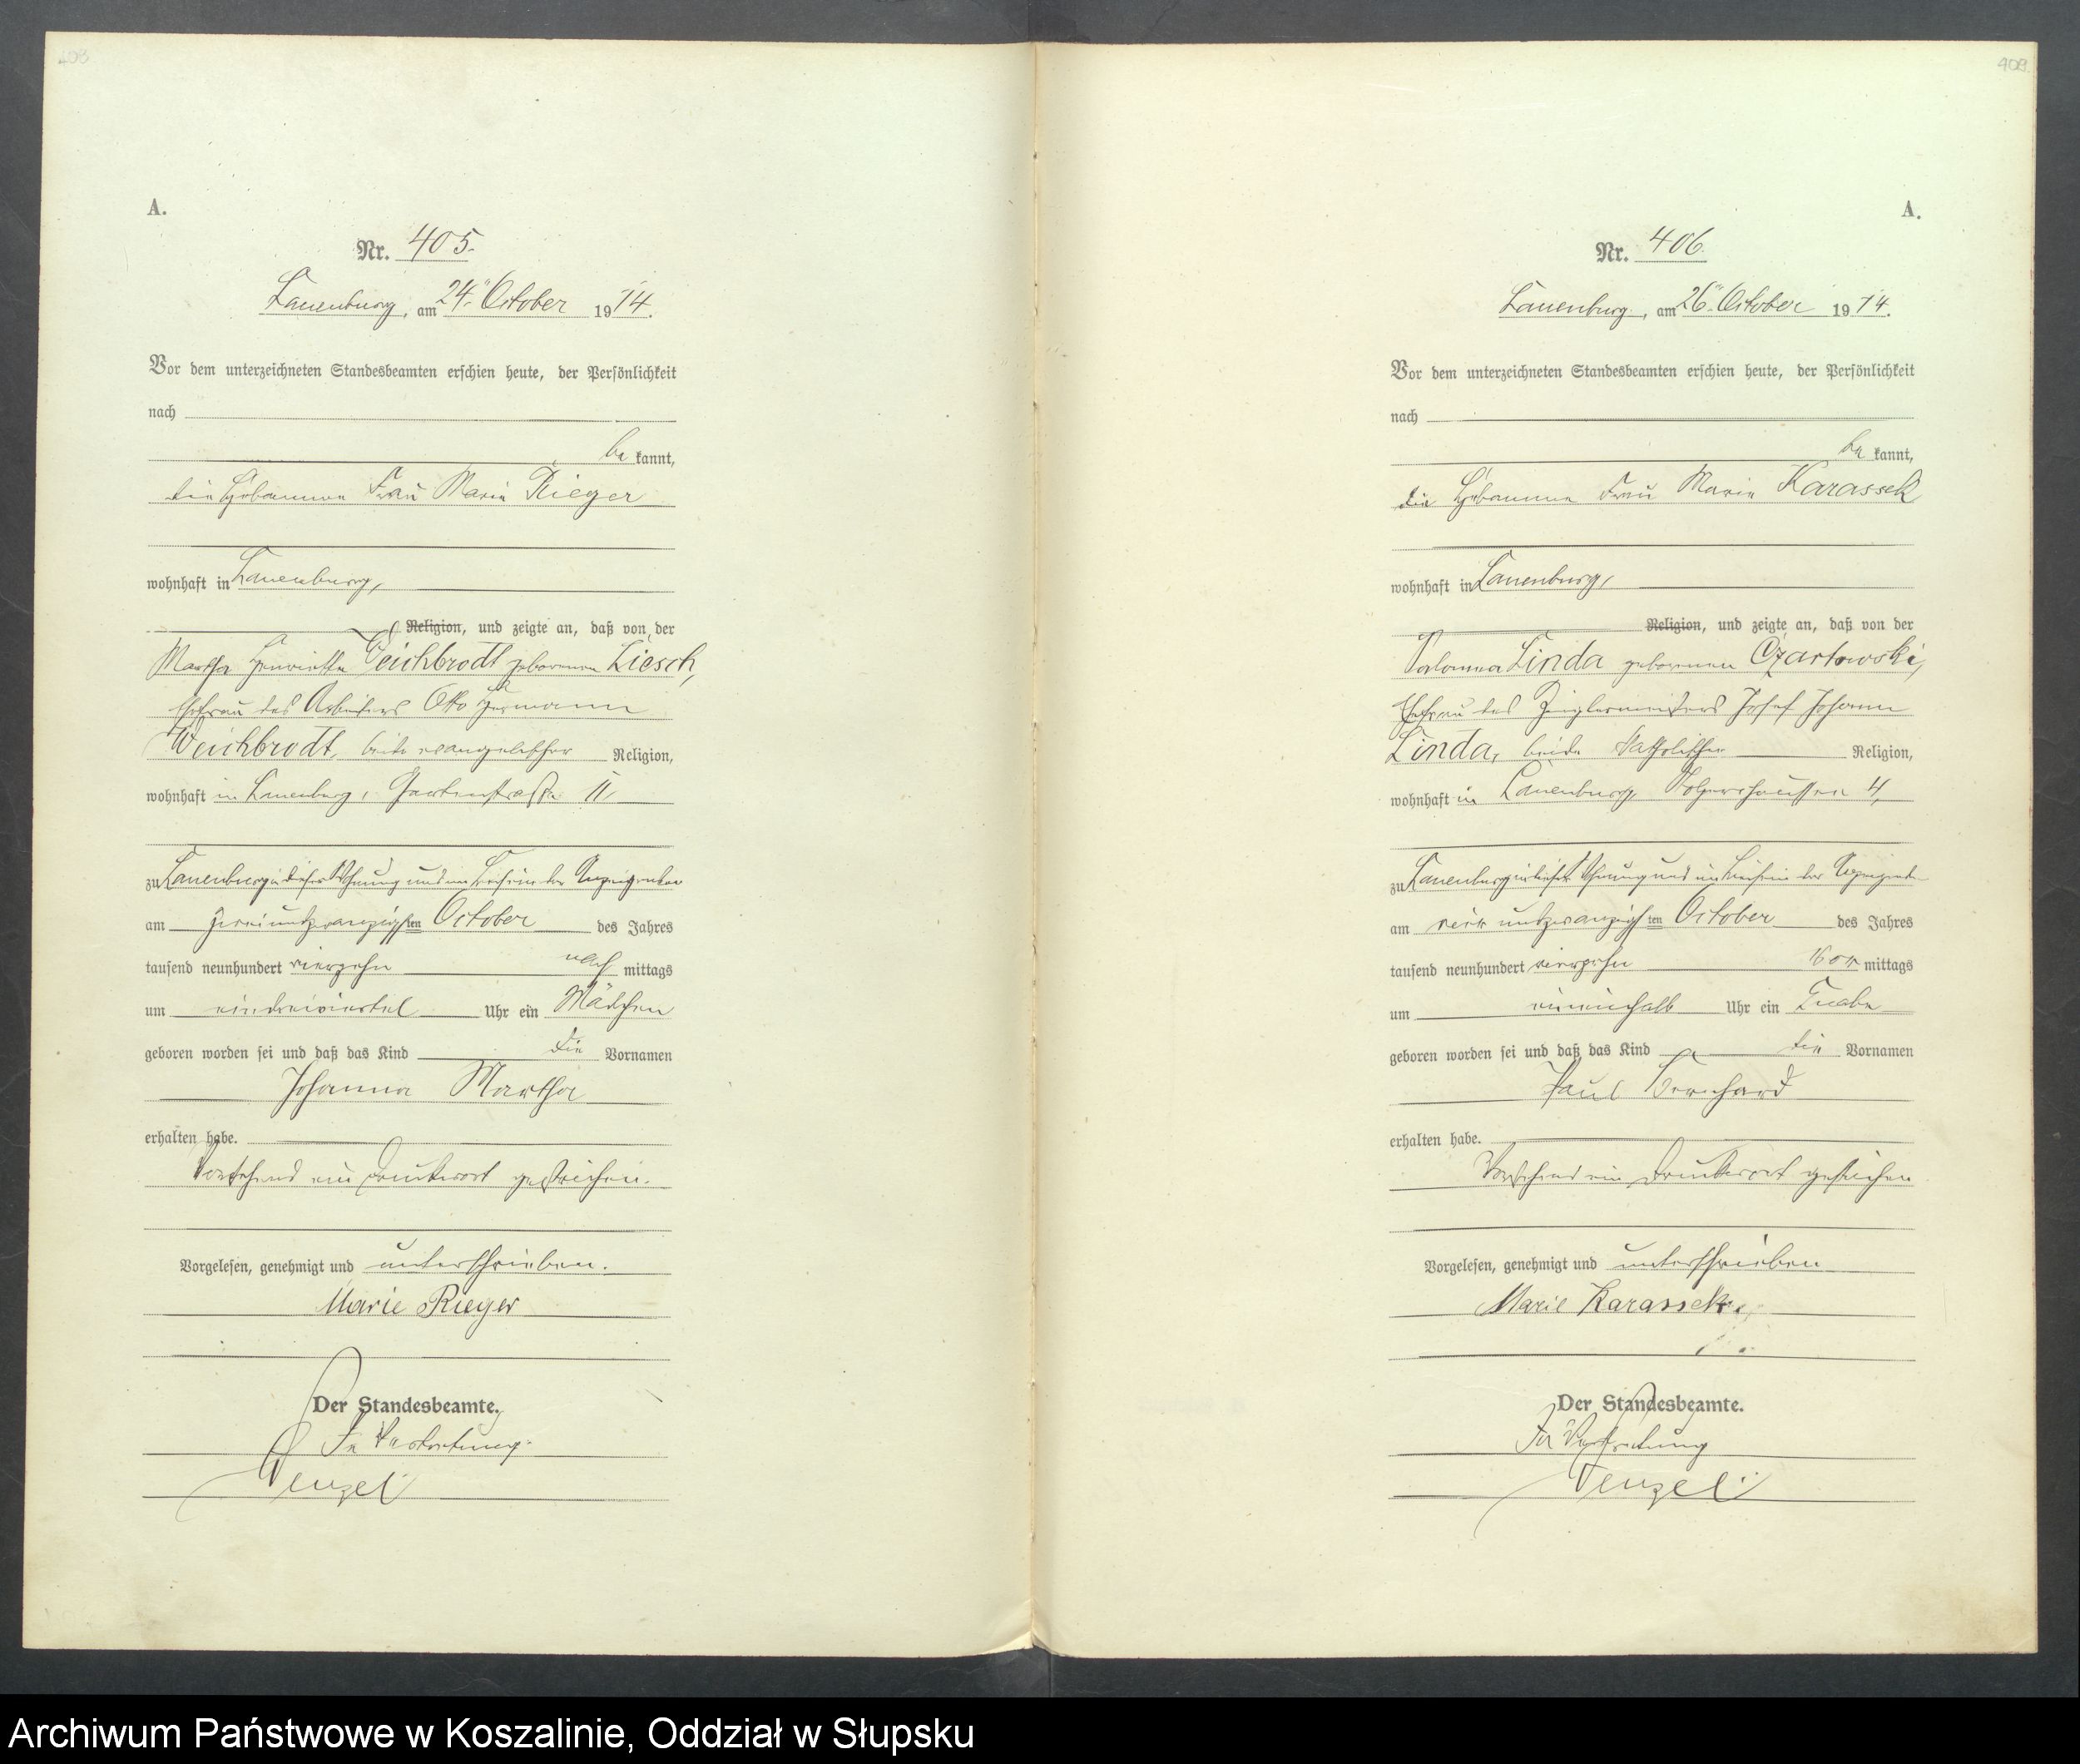 408
A.
Nr. 405.
Lauenburg, am 24. October 1914.
Vor dem unterzeichneten Standesbeamten erschien heute, der Persönlichkeit
nach
be kannt,
die Hebamme Frau Marie Rieger
wohnhaft in Lauenburg,
Religion, und zeigte an, daß von der
Martha Henriette Weichbrodt geborenen Liesch,
Ehefrau des Arbeiters Otto Hermann
Weichbrodt, beide evangelischer Religion,
wohnhaft in Lauenburg, Gartenstraße 11,
zu Lauenburg in dieser Wohnung und im Beisein der Anzeigenden
am zweiundzwanzigsten October des Jahres
tausend neunhundert vierzehn nach mittags
um eindreiviertel Uhr ein Mädchen
geboren worden sei und daß das Kind die Vornamen
Johanna Martha
erhalten habe.
Vorstehend ein Druckwort gestrichen.
Vorgelesen, genehmigt und unterschrieben.
Marie Rieger
Der Standesbeamte.
In Vertretung.
Wenzel
409
A.
Nr. 406.
Lauenburg, am 26. October 1914.
Vor dem unterzeichneten Standesbeamten erschien heute, der Persönlichkeit
nach
be kannt,
die Hebamme Frau Marie Karassek
wohnhaft in Lauenburg,
Religion, und zeigte an, daß von der
Linda geborenen Czartowski,
Ehefrau des Zieglermeisters Josef Johann
Linda, beide katholischer Religion,
wohnhaft in Lauenburg, 4,
zu Lauenburg in dieser Wohnung und im Beisein der Anzeigenden
am vierundzwanzigsten October des Jahres
tausend neunhundert vierzehn Vor mittags
um Uhr ein Knabe
geboren worden sei und daß das Kind die Vornamen
Paul Bernhard
erhalten habe.
Vorstehend ein Druckwort gestrichen
Vorgelesen, genehmigt und unterschrieben
Marie Karassek.
Der Standesbeamte.
In Vertretung
Wenzel
Archiwum Państwowe w Koszalinie, Oddział w Słupsku